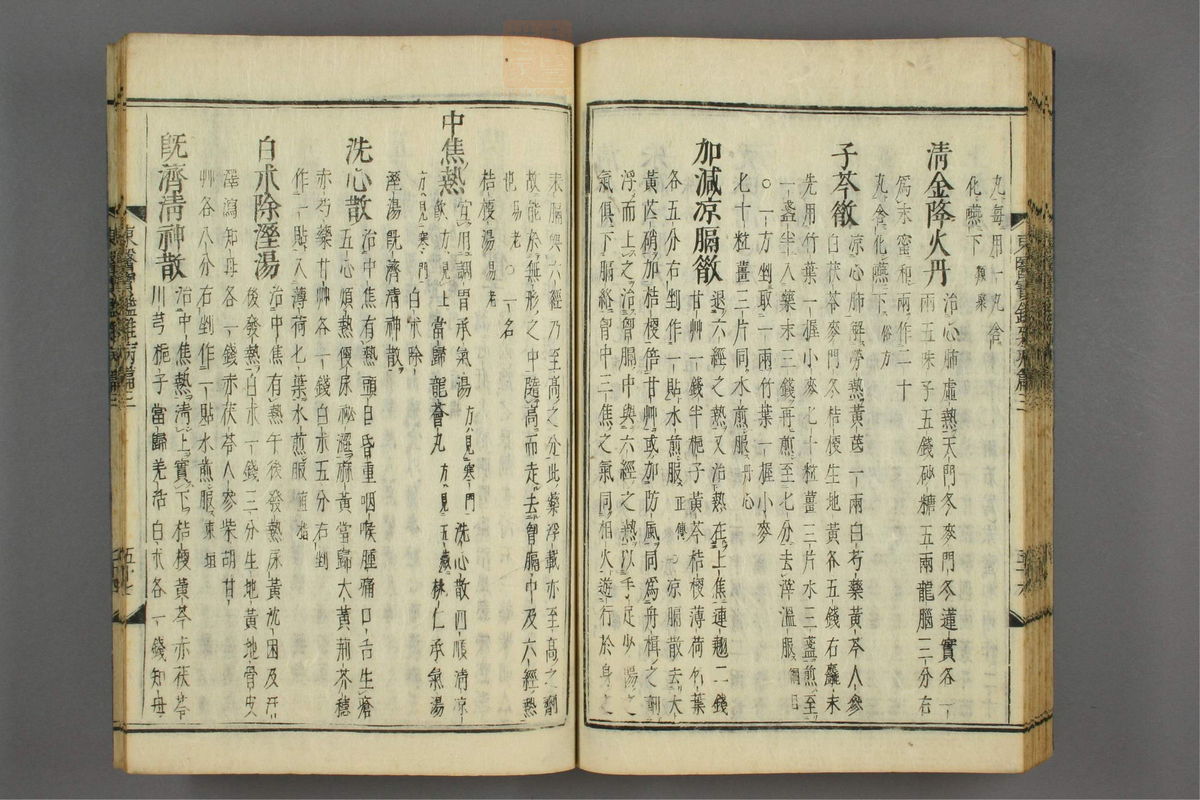 丸每用一丸含
化嚥下類聚
清金降火丹治心肺虛熱天門冬麥門冬蓮實各一
兩五味子五錢砂糖五兩龍腦三分右
爲末蜜和兩作二十
丸含化嚥下俗方
子芩散凉心肺解勞熱黃芪一兩白芍藥黃芩人參
白茯苓麥門冬桔梗生地黃各五錢右麤末
先用竹葉一握小麥七十粒薑三片水三盞煎至
一盞半入藥末三錢再煎至七分去滓溫服綱目
○一方剉取一兩竹葉一握小麥
七十粒薑三片同水煎服丹心
加減凉膈散退六經之熱又治熱在上焦連翹二錢
甘艸一錢半梔子黃芩桔梗薄荷竹葉
各五分右剉作一貼水煎服正傳○凉膈散去大
黃芒硝加桔梗倍甘艸或加防風同爲舟楫之劑
浮而上之治胷膈中與六經之熱以手足少陽之
氣俱下膈絡胷中三焦之氣同相火遊行於身之
東醫寶鑑雜病篇三
五十六
表膈與六經乃至高之分此藥浮載亦至高之劑
故能於無形之中隨高而走去胷膈中及六經熱
也易老○一名
桔梗湯湯老
中焦熱宜用調胃承氣湯方見寒門洗心散四順清凉
散方見上當歸龍薈丸方見五藏桃仁承氣湯
方見寒門白朮除
溼湯旣濟清神散
洗心散治中焦有熱頭目昏重咽喉腫痛口舌生瘡
五心煩熱便尿祕澁麻黃當歸大黃荊芥穗
赤芍藥甘艸各一錢白朮五分右剉
作一貼入薄荷七葉水煎服
白朮除溼湯治中焦有熱午後發熱尿黃沈困及汗
後發熱白朮一錢三分生地黃地骨皮
澤瀉知母各一錢赤茯苓人參柴胡甘
艸各八分右剉作一貼水煎服東垣
旣濟清神散治中焦熱清上實下桔梗黃芩赤茯苓
川芎梔子當歸羌活白朮各一錢知母
東醫寶鑑雜病篇三
五十七